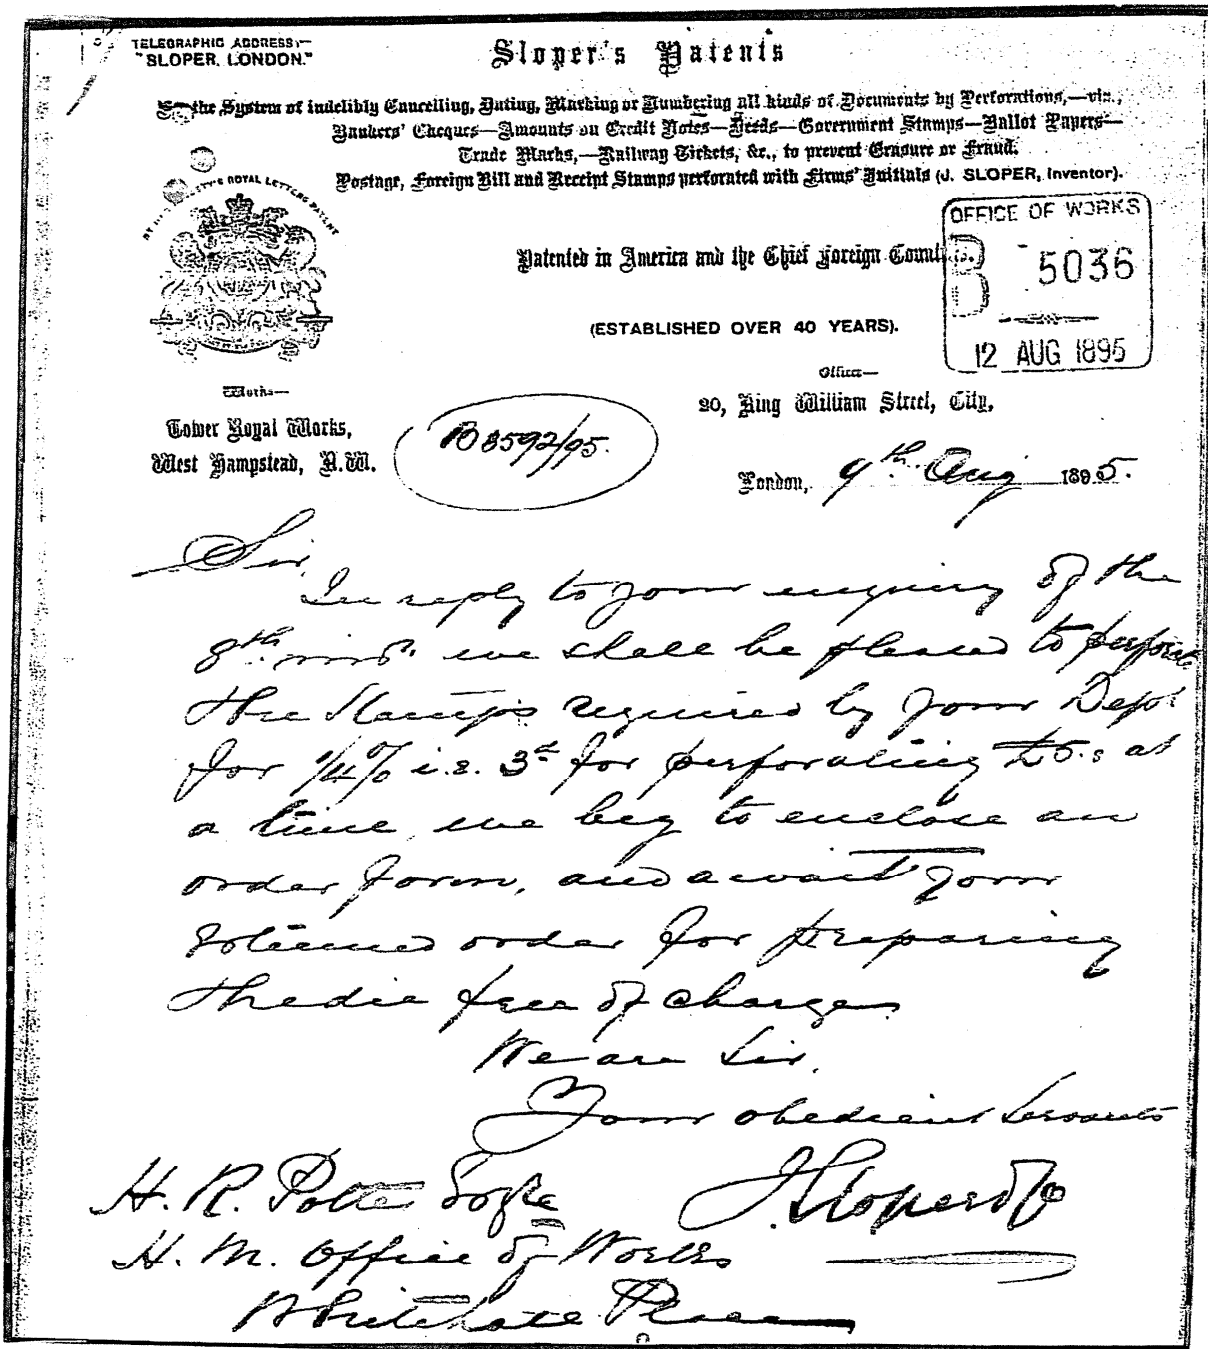 TELEGRAPHIC ADDRESS:—
"SLOPER, LONDON."
Sloper's Patents
For the System of indelibly Cancelling, Dating, Marking or Numbering all kinds of Documents by Perforations,—viz.,
Bankers' Cheques—Amounts on Credit Notes—Deeds—Government Stamps—Ballot Papers—
Trade Marks,—Railway Tickets, &c., to prevent Erasure or Fraud.
Postage, Foreign Bill and Receipt Stamps perforated with Firms' Initials (J. SLOPER, Inventor).
ROYAL LETTERS PATENT
OFFICE OF WORKS
B 5036
12 AUG 1895
Patented in America and the Chief Foreign Countries.
(ESTABLISHED OVER 40 YEARS).
Works—
Tower Royal Works,
West Hampstead, N.W.
B 8592/95.
Office—
20, King William Street, City,
London, 9th Aug 1895.
Sir,
In reply to your enquiry of the
8th inst. we shall be pleased to perforate
the Stamps required by your Dept
for 1/4% i.e. 3d for perforating £5.s at
a time, we beg to enclose an
order form, and await your
esteemed order for preparing
the die free of charge.
We are Sir,
Your obedient Servants
J. Sloper & Co
H. R. Potter Esqre
H. M. Office of Works
Whitehall Place